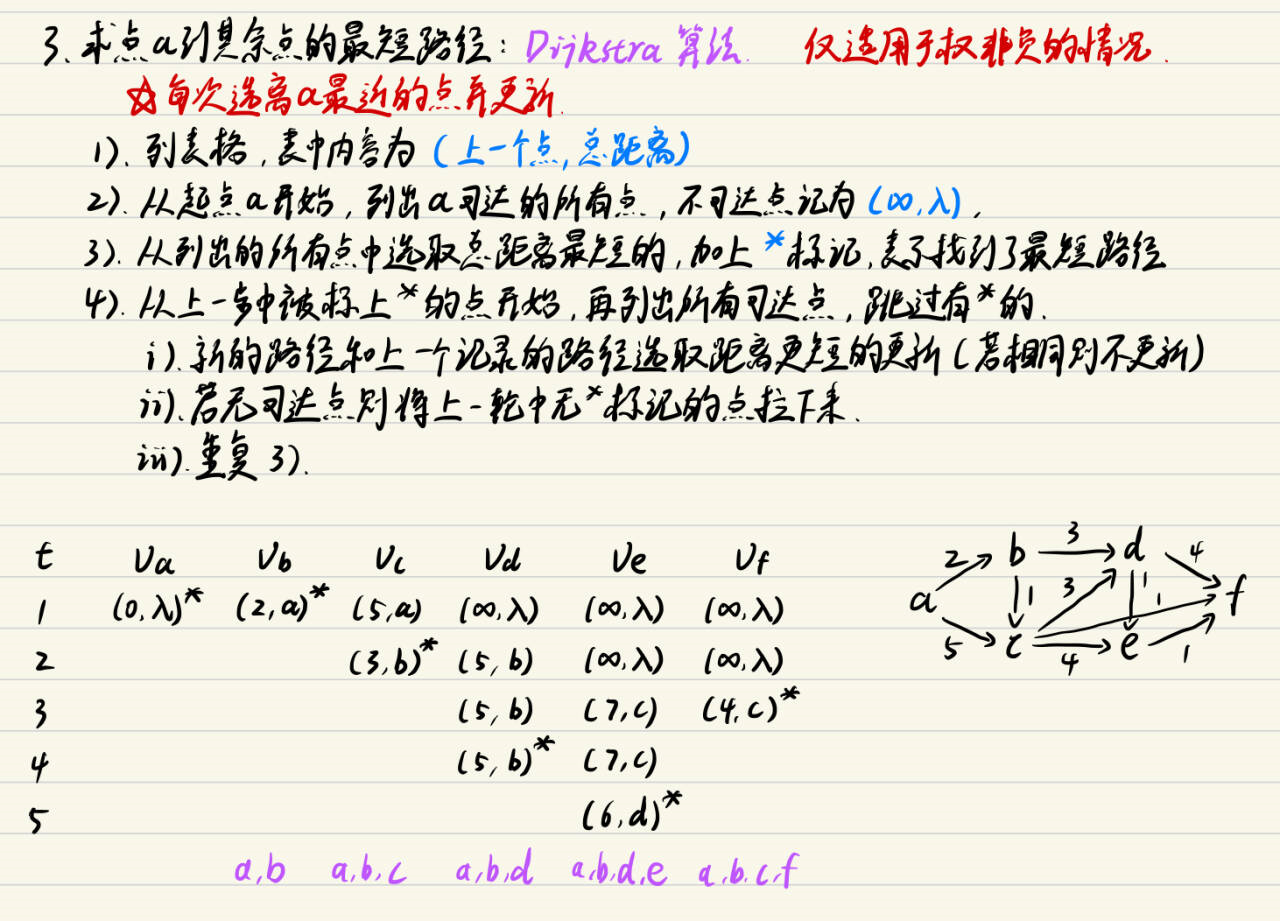 3. 求点a到其余点的最短路径：Dijkstra 算法. 仅适用于权非负的情况.
☆每次选离a最近的点并更新.
1). 列表格，表中内容为（上一个点，总距离）
2). 从起点a开始，列出a可达的所有点，不可达点记为 (∞,λ).
3). 从列出的所有点中选取总距离最短的，加上 * 标记，表示找到了最短路径
4). 从上一步中被标上 * 的点开始，再列出所有可达点，跳过有 * 的.
i). 新的路径和上一个记录的路径选取距离更短的更新（若相同则不更新）
ii). 若无可达点则将上一轮中无 * 标记的点拉下来.
iii). 重复 3).
t Va Vb Vc Vd Ve Vf
1 (0,λ)* (2,a)* (5,a) (∞,λ) (∞,λ) (∞,λ)
2 (3,b)* (5,b) (∞,λ) (∞,λ)
3 (5,b) (7,c) (4,c)*
4 (5,b)* (7,c)
5 (6,d)*
a,b a,b,c a,b,d a,b,d,e a,b,c,f
2 b 3 d 4
a 1 3 1 1 f
5 c 4 e 1